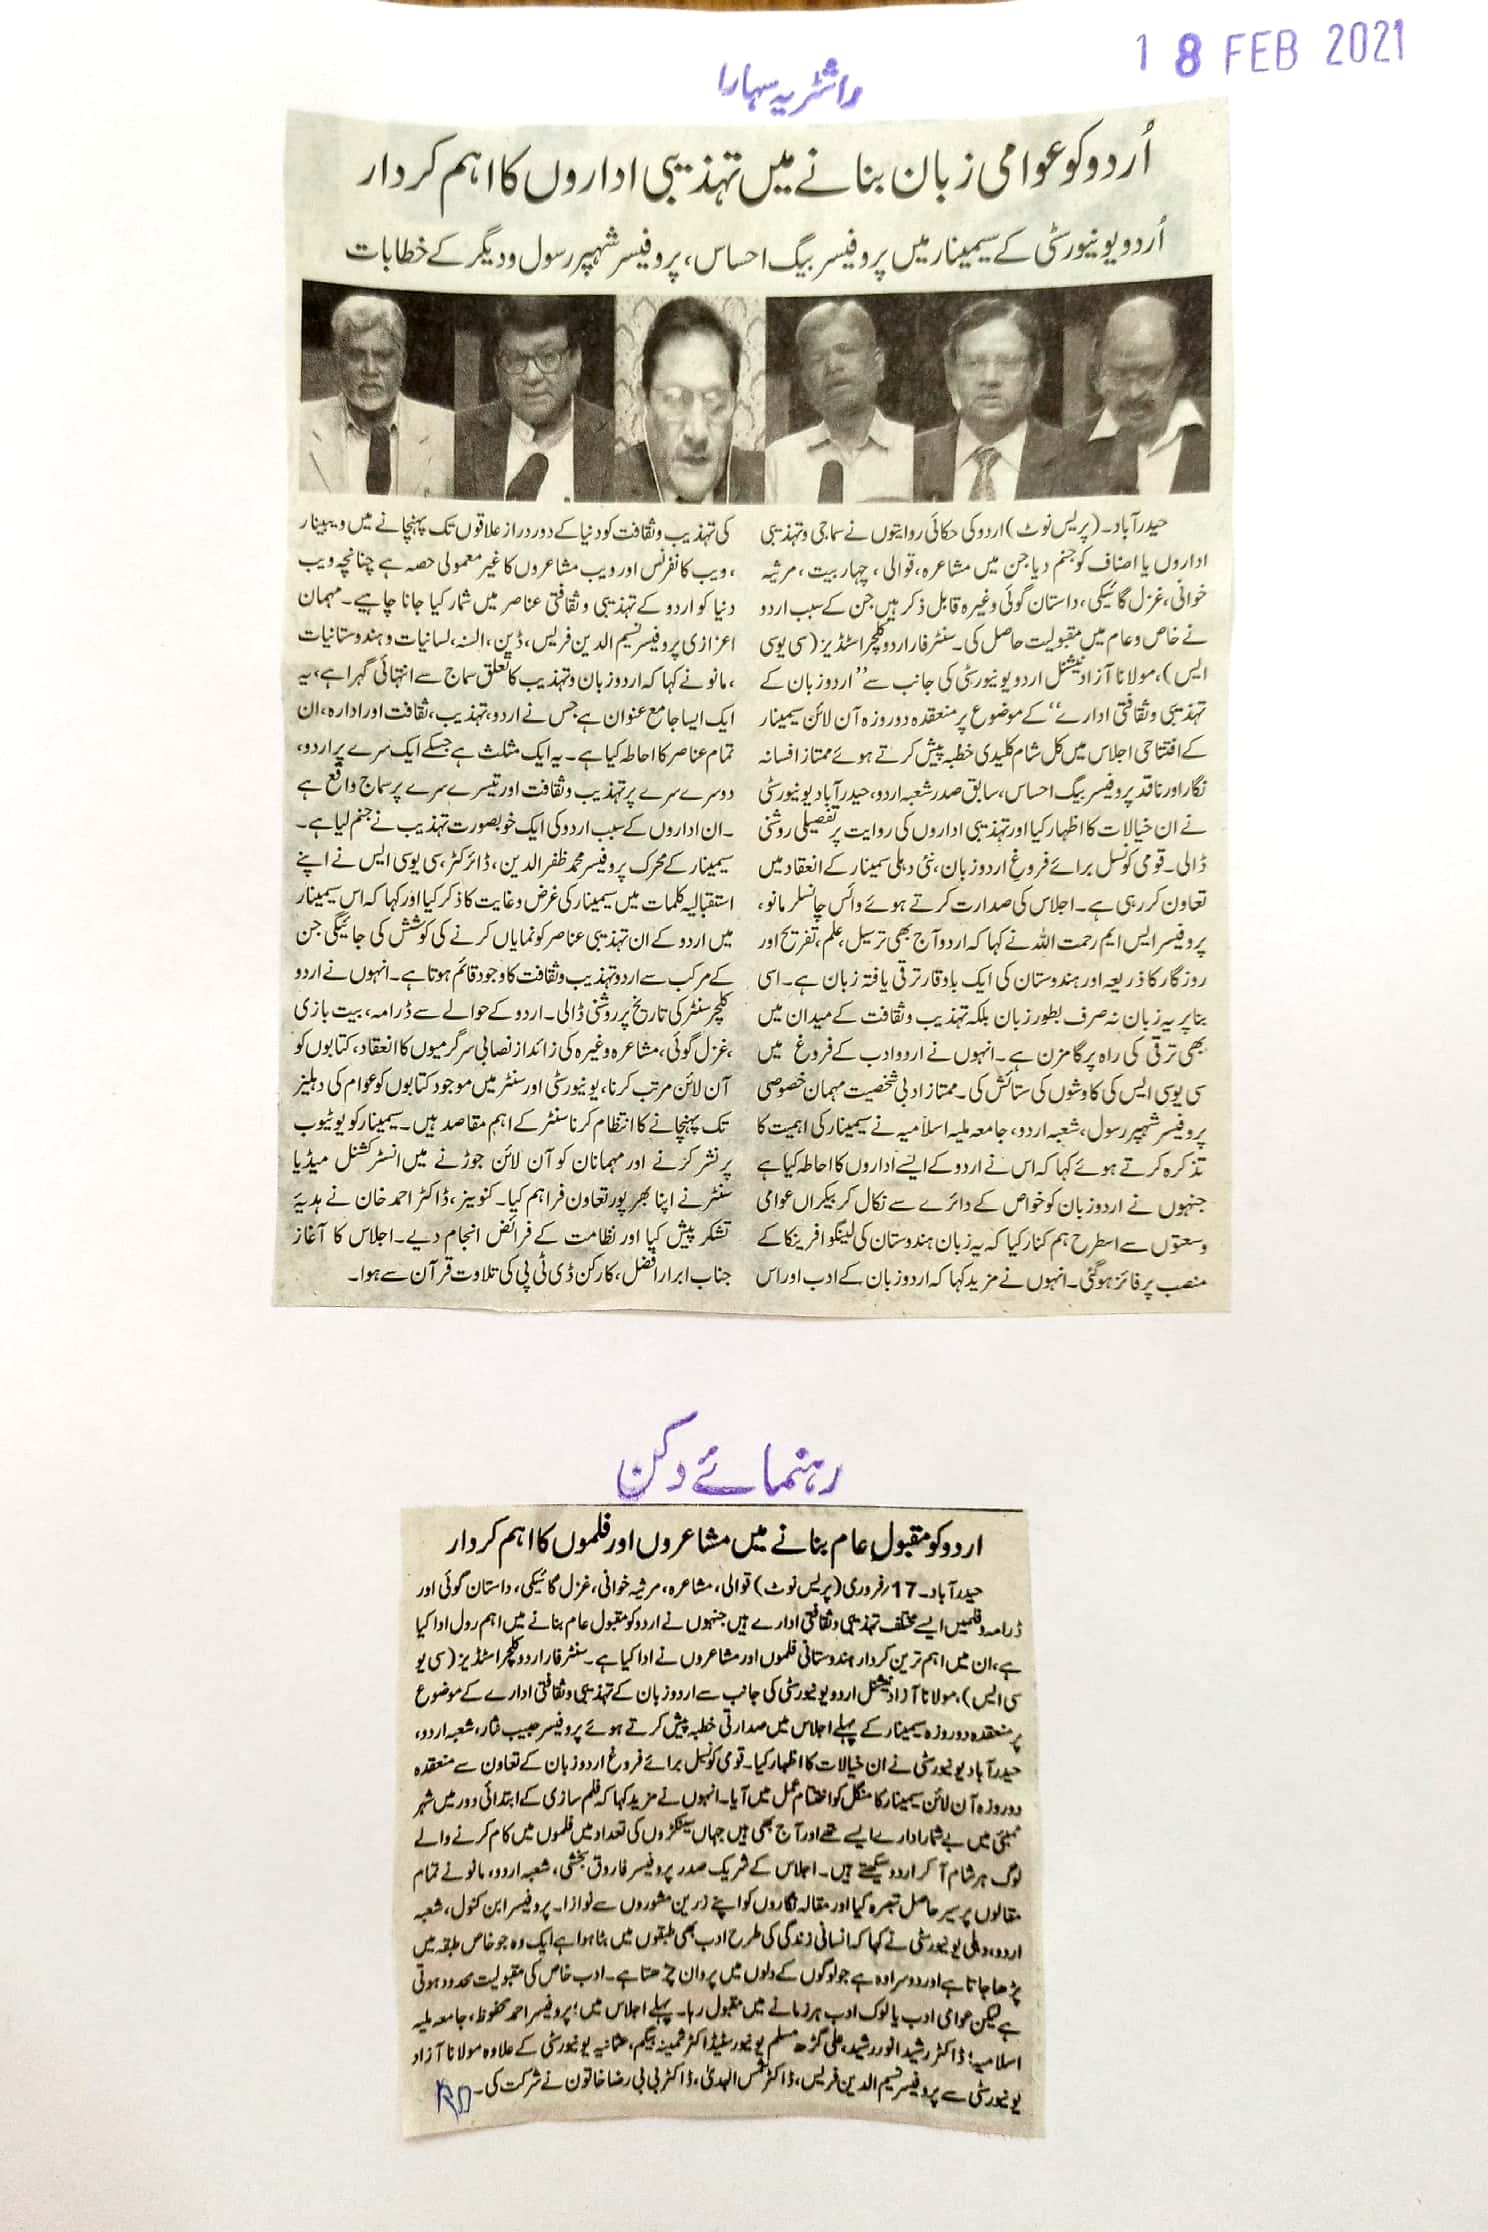 18 FEB 2021
راشٹریہ سہارا
اُردو کو عوامی زبان بنانے میں تہذیبی اداروں کا اہم کردار
اُردو یونیورسٹی کے سیمینار میں پروفیسر بیگ احساس، پروفیسر شہپر رسول و دیگر کے خطابات
حیدرآباد۔ (پریس نوٹ) اردو کی حکائی روایتوں نے سماجی و تہذیبی
اداروں یا اصناف کو جنم دیا جن میں مشاعرہ، قوالی، چہار بیت، مرثیہ
خوانی، غزل گائیکی، داستان گوئی وغیرہ قابل ذکر ہیں جن کے سبب اردو
نے خاص و عام میں مقبولیت حاصل کی۔ سنٹر فار اردو کلچر اسٹڈیز (سی یو سی
ایس)، مولانا آزاد نیشنل اردو یونیورسٹی کی جانب سے ’’اردو زبان کے
تہذیبی و ثقافتی ادارے‘‘ کے موضوع پر منعقدہ دو روزہ آن لائن سیمینار
کے افتتاحی اجلاس میں کل شام کلیدی خطبہ پیش کرتے ہوئے ممتاز افسانہ
نگار اور ناقد پروفیسر بیگ احساس، سابق صدر شعبہ اردو، حیدرآباد یونیورسٹی
نے ان خیالات کا اظہار کیا اور تہذیبی اداروں کی روایت پر تفصیلی روشنی
ڈالی۔ قومی کونسل برائے فروغ اردو زبان، نئی دہلی سمینار کے انعقاد میں
تعاون کر رہی ہے۔ اجلاس کی صدارت کرتے ہوئے وائس چانسلر مانو،
پروفیسر ایس ایم رحمت اللہ نے کہا کہ اردو آج بھی ترسیل، علم، تفریح اور
روزگار کا ذریعہ اور ہندوستان کی ایک باوقار ترقی یافتہ زبان ہے۔ اسی
بنا پر یہ زبان نہ صرف بطور زبان بلکہ تہذیب و ثقافت کے میدان میں
بھی ترقی کی راہ پر گامزن ہے۔ انہوں نے اردو ادب کے فروغ میں
سی یو سی ایس کی کاوشوں کی ستائش کی۔ ممتاز ادبی شخصیت مہمان خصوصی
پروفیسر شہپر رسول، شعبہ اردو، جامعہ ملیہ اسلامیہ نے سیمینار کی اہمیت کا
تذکرہ کرتے ہوئے کہا کہ اس نے اردو کے ایسے اداروں کا احاطہ کیا ہے
جنہوں نے اردو زبان کو خواص کے دائرے سے نکال کر بیکراں عوامی
وسعتوں سے اسطرح ہم کنار کیا کہ یہ زبان ہندوستان کی لینگو افرینکا کے
منصب پر فائز ہوگئی۔ انہوں نے مزید کہا کہ اردو زبان کے ادب اور اس
کی تہذیب و ثقافت کو دنیا کے دور دراز علاقوں تک پہنچانے میں ویبینار
، ویب کانفرنس اور ویب مشاعروں کا غیر معمولی حصہ ہے چنانچہ ویب
دنیا کو اردو کے تہذیبی و ثقافتی عناصر میں شمار کیا جانا چاہیے۔ مہمان
اعزازی پروفیسر نسیم الدین فریس، ڈین، السنہ، لسانیات و ہندوستانیات
، مانو نے کہا کہ اردو زبان و تہذیب کا تعلق سماج سے انتہائی گہرا ہے، یہ
ایک ایسا جامع عنوان ہے جس نے اردو، تہذیب، ثقافت اور ادارہ، ان
تمام عناصر کا احاطہ کیا ہے۔ یہ ایک مثلث ہے جسکے ایک سرے پر اردو،
دوسرے سرے پر تہذیب و ثقافت اور تیسرے سرے پر سماج واقع ہے
۔ ان اداروں کے سبب اردو کی ایک خوبصورت تہذیب نے جنم لیا ہے۔
سیمینار کے محرک پروفیسر محمد ظفر الدین، ڈائرکٹر، سی یو سی ایس نے اپنے
استقبالیہ کلمات میں سیمینار کی غرض و غایت کا ذکر کیا اور کہا کہ اس سیمینار
میں اردو کے ان تہذیبی عناصر کو نمایاں کرنے کی کوشش کی جائیگی جن
کے مرکب سے اردو تہذیب و ثقافت کا وجود قائم ہوتا ہے۔ انہوں نے اردو
کلچر سنٹر کی تاریخ پر روشنی ڈالی۔ اردو کے حوالے سے ڈرامہ، بیت بازی
، غزل گوئی، مشاعرہ وغیرہ کی زائد از نصابی سرگرمیوں کا انعقاد، کتابوں کو
آن لائن مرتب کرنا، یونیورسٹی اور سنٹر میں موجود کتابوں کو عوام کی دہلیز
تک پہنچانے کا انتظام کرنا سنٹر کے اہم مقاصد ہیں۔ سیمینار کو یوٹیوب
پر نشر کرنے اور مہمانان کو آن لائن جوڑنے میں انسٹرکشنل میڈیا
سنٹر نے اپنا بھرپور تعاون فراہم کیا۔ کنوینر، ڈاکٹر احمد خان نے ہدیۂ
تشکر پیش کیا اور نظامت کے فرائض انجام دیے۔ اجلاس کا آغاز
جناب ابرار افضل، کارکن ڈی ٹی پی کی تلاوت قرآن سے ہوا۔
رہنمائے دکن
اردو کو مقبول عام بنانے میں مشاعروں اور فلموں کا اہم کردار
حیدرآباد۔ 17؍ فروری (پریس نوٹ) قوالی، مشاعرہ، مرثیہ خوانی، غزل گائیکی، داستان گوئی اور
ڈرامہ و فلمیں ایسے مختلف تہذیبی و ثقافتی ادارے ہیں جنہوں نے اردو کو مقبول عام بنانے میں اہم رول ادا کیا
ہے، ان میں اہم ترین کردار ہندوستانی فلموں اور مشاعروں نے ادا کیا ہے۔ سنٹر فار اردو کلچر اسٹڈیز (سی یو
سی ایس)، مولانا آزاد نیشنل اردو یونیورسٹی کی جانب سے اردو زبان کے تہذیبی و ثقافتی ادارے کے موضوع
پر منعقدہ دو روزہ سیمینار کے پہلے اجلاس میں صدارتی خطبہ پیش کرتے ہوئے پروفیسر حبیب نثار، شعبہ اردو،
حیدرآباد یونیورسٹی نے ان خیالات کا اظہار کیا۔ قومی کونسل برائے فروغ اردو زبان کے تعاون سے منعقدہ
دو روزہ آن لائن سیمینار کا منگل کو اختتام عمل میں آیا۔ انہوں نے مزید کہا کہ فلم سازی کے ابتدائی دور میں شہر
ممبئی میں بے شمار ادارے ایسے تھے اور آج بھی ہیں جہاں سینکڑوں کی تعداد میں فلموں میں کام کرنے والے
لوگ ہر شام آ کر اردو سیکھتے ہیں۔ اجلاس کے شریک صدر پروفیسر فاروق بخشی، شعبہ اردو، مانو نے تمام
مقالوں پر سیر حاصل تبصرہ کیا اور مقالہ نگاروں کو اپنے زرین مشوروں سے نوازا۔ پروفیسر ابن کنول، شعبہ
اردو، دہلی یونیورسٹی نے کہا کہ انسانی زندگی کی طرح ادب بھی طبقوں میں بٹا ہوا ہے ایک وہ جو خاص طبقہ میں
پڑھا جاتا ہے اور دوسرا وہ ہے جو لوگوں کے دلوں میں پروان چڑھتا ہے۔ ادب خاص کی مقبولیت محدود ہوتی
ہے لیکن عوامی ادب یا لوک ادب ہر زمانے میں مقبول رہا۔ پہلے اجلاس میں؛ پروفیسر احمد محفوظ، جامعہ ملیہ
اسلامیہ؛ ڈاکٹر رشید انور رشید، علی گڑھ مسلم یونیورسٹی؛ ڈاکٹر ثمینہ بیگم، عثمانیہ یونیورسٹی کے علاوہ مولانا آزاد
یونیورسٹی سے پروفیسر نسیم الدین فریس، ڈاکٹر شمس الہدیٰ، ڈاکٹر بی بی رضا خاتون نے شرکت کی۔